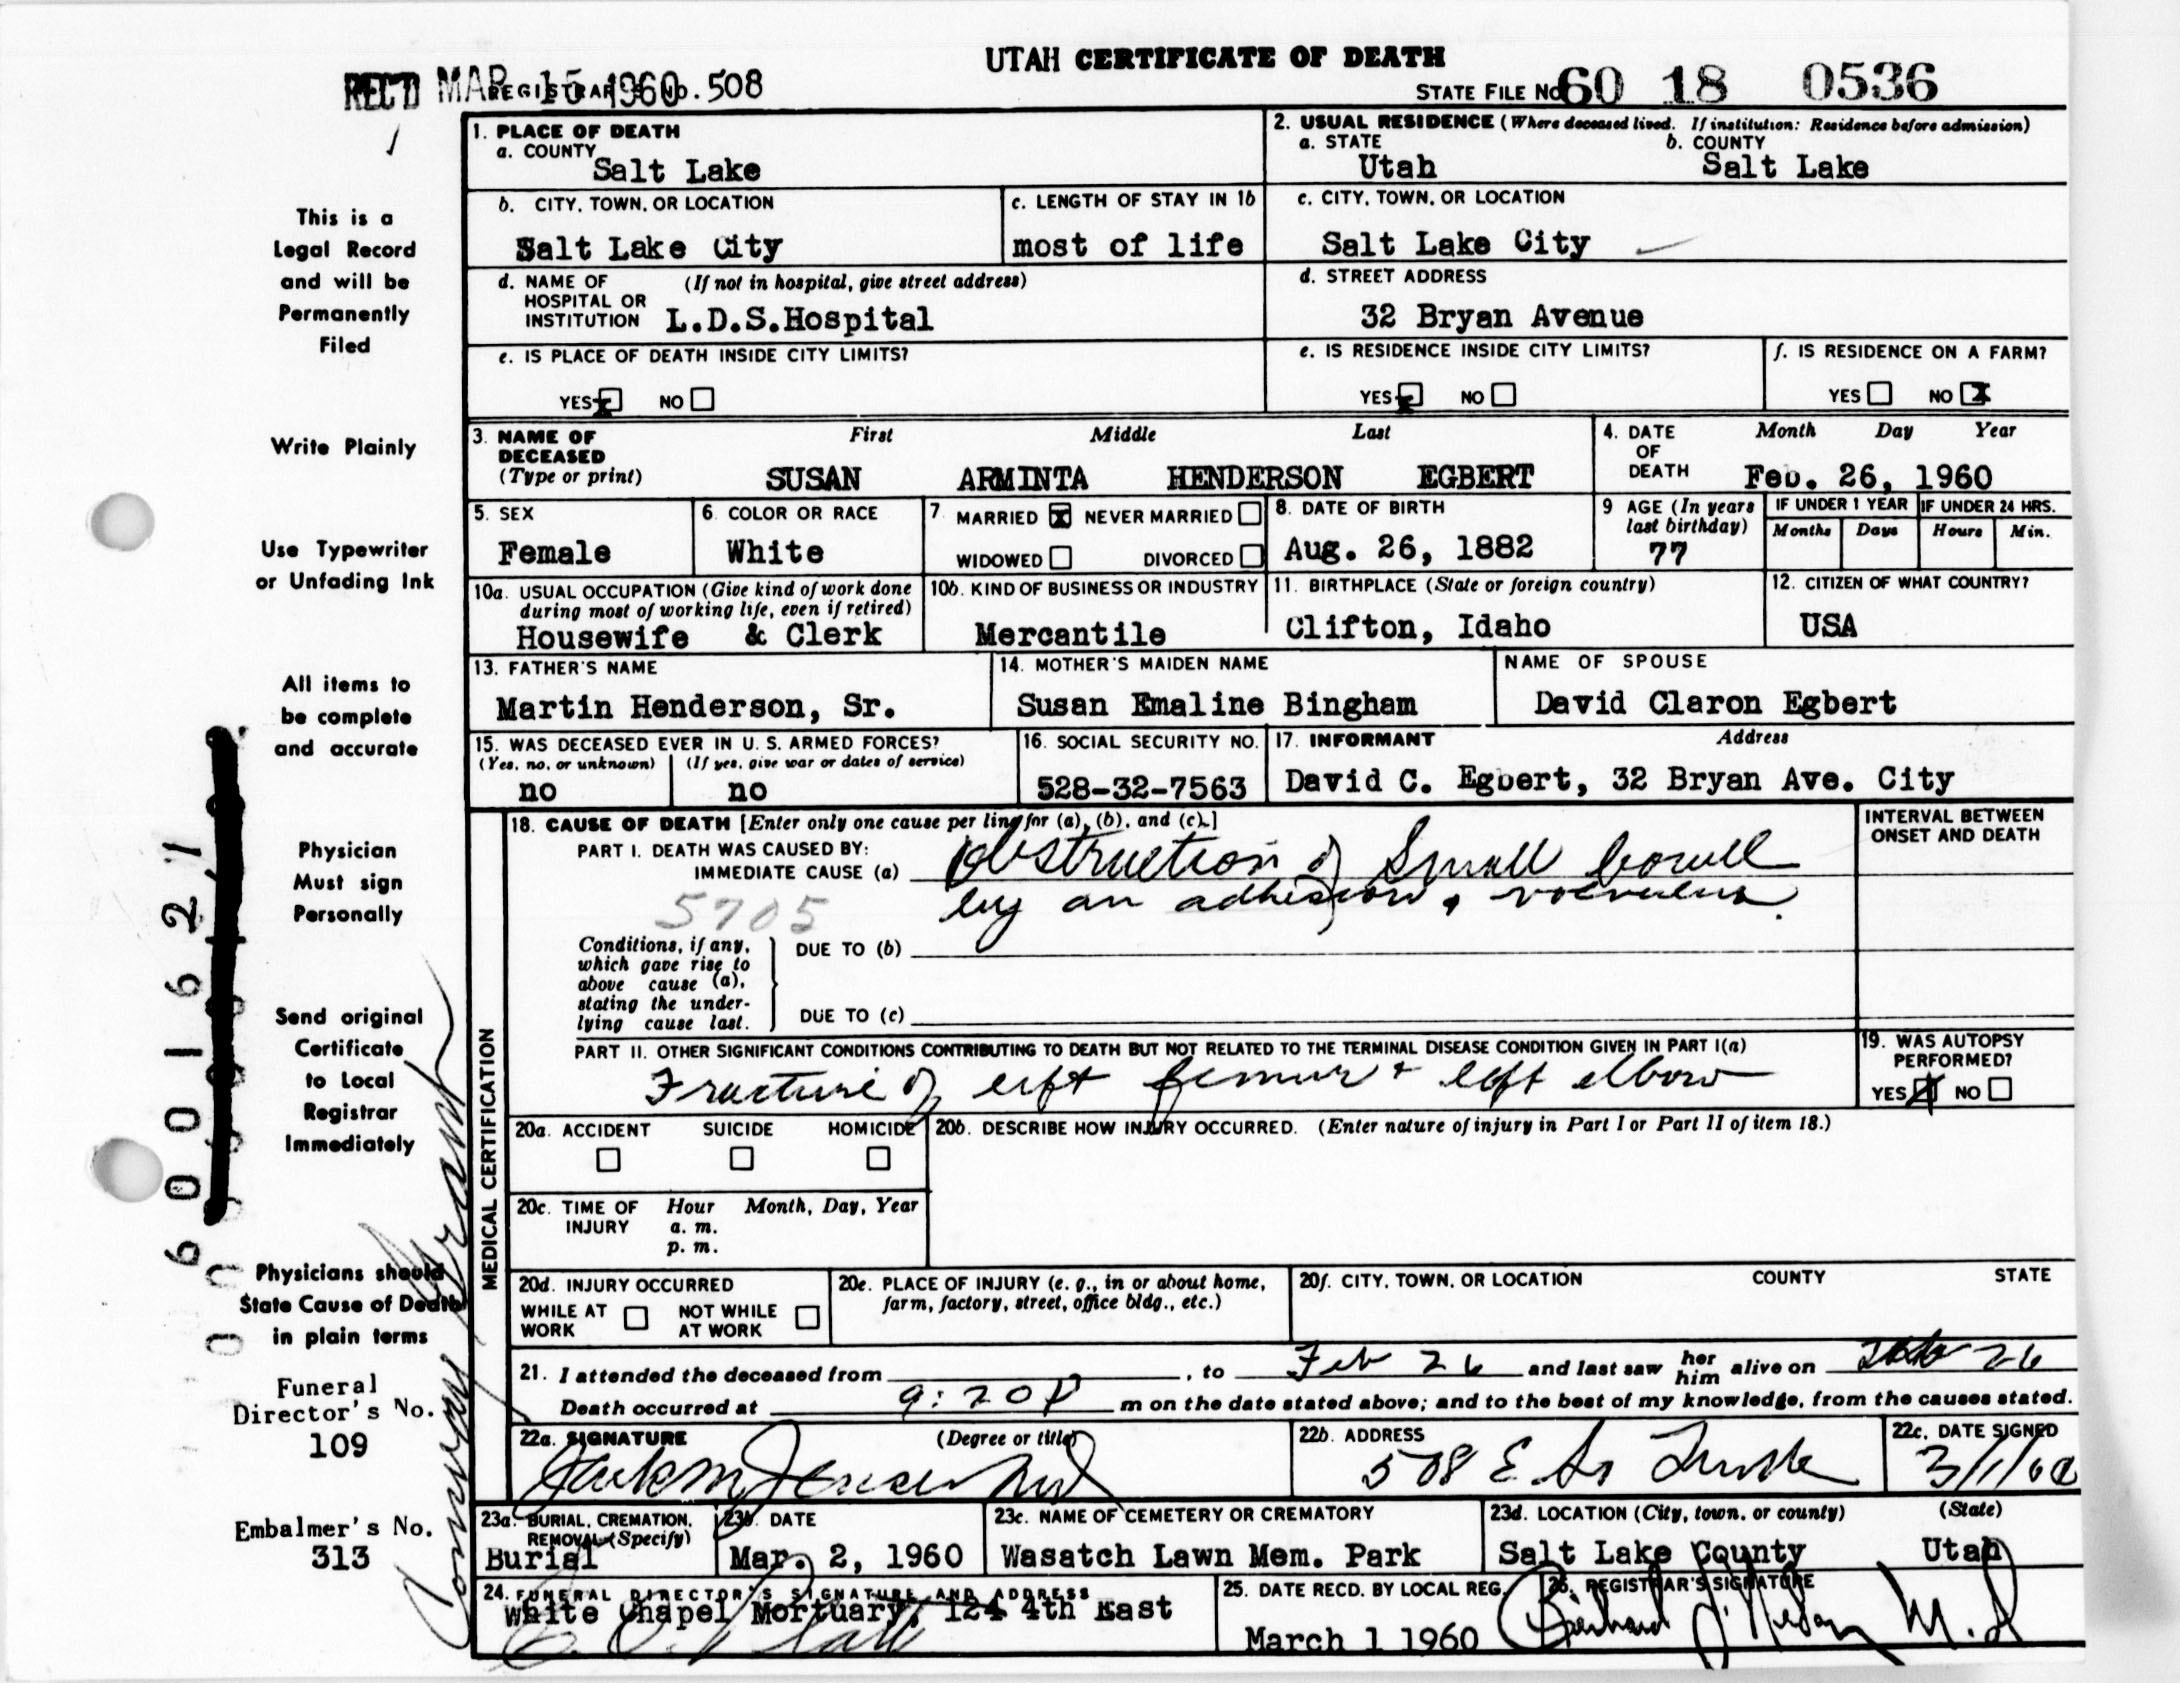 UTAH CERTIFICATE OF DEATH
REC'D MAR 15 1960 REGISTRAR'S No. 508
STATE FILE No 60 18 0536
1. PLACE OF DEATH
a. COUNTY
Salt Lake
2. USUAL RESIDENCE (Where deceased lived. If institution: Residence before admission)
a. STATE b. COUNTY
Utah Salt Lake
b. CITY, TOWN, OR LOCATION
Salt Lake City
c. LENGTH OF STAY IN 1b
most of life
c. CITY, TOWN, OR LOCATION
Salt Lake City
d. NAME OF HOSPITAL OR INSTITUTION (If not in hospital, give street address)
L.D.S.Hospital
d. STREET ADDRESS
32 Bryan Avenue
e. IS PLACE OF DEATH INSIDE CITY LIMITS?
YES x NO
e. IS RESIDENCE INSIDE CITY LIMITS?
YES x NO
f. IS RESIDENCE ON A FARM?
YES NO X
3. NAME OF DECEASED (Type or print)
First Middle Last
SUSAN ARMINTA HENDERSON EGBERT
4. DATE OF DEATH
Month Day Year
Feb. 26, 1960
5. SEX
Female
6. COLOR OR RACE
White
7 MARRIED X NEVER MARRIED
WIDOWED DIVORCED
8. DATE OF BIRTH
Aug. 26, 1882
9 AGE (In years last birthday)
77
IF UNDER 1 YEAR
Months Days
IF UNDER 24 HRS.
Hours Min.
10a. USUAL OCCUPATION (Give kind of work done during most of working life, even if retired)
Housewife & Clerk
10b. KIND OF BUSINESS OR INDUSTRY
Mercantile
11. BIRTHPLACE (State or foreign country)
Clifton, Idaho
12. CITIZEN OF WHAT COUNTRY?
USA
13. FATHER'S NAME
Martin Henderson, Sr.
14. MOTHER'S MAIDEN NAME
Susan Emaline Bingham
NAME OF SPOUSE
David Claron Egbert
15. WAS DECEASED EVER IN U. S. ARMED FORCES?
(Yes, no, or unknown) (If yes, give war or dates of service)
no no
16. SOCIAL SECURITY NO.
528-32-7563
17. INFORMANT Address
David C. Egbert, 32 Bryan Ave. City
MEDICAL CERTIFICATION
18. CAUSE OF DEATH [Enter only one cause per line for (a), (b), and (c).]
INTERVAL BETWEEN ONSET AND DEATH
PART I. DEATH WAS CAUSED BY:
IMMEDIATE CAUSE (a) Obstruction of Small bowell
by an adhesion, volvulus.
5705
Conditions, if any, which gave rise to above cause (a), stating the underlying cause last.
DUE TO (b)
DUE TO (c)
PART II. OTHER SIGNIFICANT CONDITIONS CONTRIBUTING TO DEATH BUT NOT RELATED TO THE TERMINAL DISEASE CONDITION GIVEN IN PART I(a)
Fracture of left femur + left elbow
19. WAS AUTOPSY PERFORMED?
YES X NO
20a. ACCIDENT SUICIDE HOMICIDE
20b. DESCRIBE HOW INJURY OCCURRED. (Enter nature of injury in Part I or Part II of item 18.)
20c. TIME OF INJURY
Hour Month, Day, Year
a. m.
p. m.
20d. INJURY OCCURRED
WHILE AT WORK NOT WHILE AT WORK
20e. PLACE OF INJURY (e. g., in or about home, farm, factory, street, office bldg., etc.)
20f. CITY, TOWN, OR LOCATION COUNTY STATE
21. I attended the deceased from , to Feb 26 and last saw her him alive on Feb 26
Death occurred at 9:20 P m on the date stated above; and to the best of my knowledge, from the causes stated.
22a. SIGNATURE (Degree or title)
Jack M Jensen MD
22b. ADDRESS
508 E So Temple
22c. DATE SIGNED
3/1/60
23a. BURIAL, CREMATION, REMOVAL (Specify)
Burial
23b. DATE
Mar. 2, 1960
23c. NAME OF CEMETERY OR CREMATORY
Wasatch Lawn Mem. Park
23d. LOCATION (City, town, or county) (State)
Salt Lake County Utah
24. FUNERAL DIRECTOR'S SIGNATURE AND ADDRESS
White Chapel Mortuary, 124 4th East
25. DATE RECD. BY LOCAL REG.
March 1 1960
26. REGISTRAR'S SIGNATURE
M.D.
This is a
Legal Record
and will be
Permanently
Filed
Write Plainly
Use Typewriter
or Unfading Ink
All items to
be complete
and accurate
Physician
Must sign
Personally
Send original
Certificate
to Local
Registrar
Immediately
Physicians should
State Cause of Death
in plain terms
Funeral
Director's No.
109
Embalmer's No.
313
6001621
Conway Grant